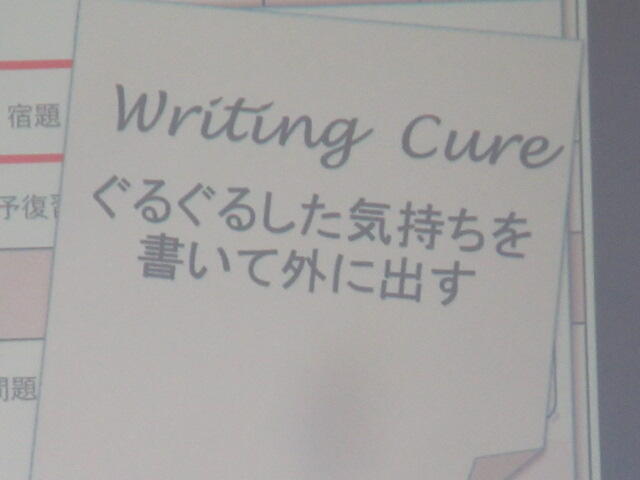 Writing Cure
ぐるぐるした気持ちを
書いて外に出す
宿題
予復習
問題